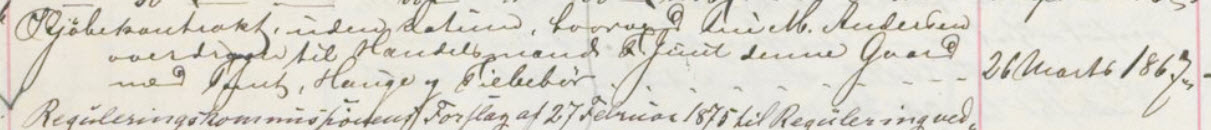 Kjöbekontrakt, uden Datum, hvorved M. Andersen
overdrager til Handelsmand Juul denne Gaard
med Tomt, Hauge og Tilbehör . . . . . - - - - 26 Marts 1867
Reguleringskommissionens Forslag af 27 Februar 1875 til Regulering ved„